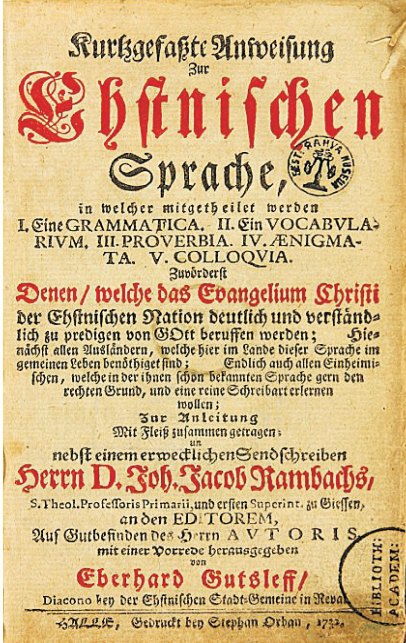 Kurtzgefaßte Anweisung
Zur
Ehstnischen
Sprache,
in welcher mitgetheilet werden
I. Eine GRAMMATICA. II. Ein VOCABVLA-
RIVM. III. PROVERBIA. IV. ÆNIGMA-
TA. V. COLLOQVIA.
Zuvörderst
Denen/ welche das Evangelium Christi
der Ehstnischen Nation deutlich und verständ-
lich zu predigen von GOtt beruffen werden; Hie-
nächst allen Ausländern, welche hier im Lande dieser Sprache im
gemeinen Leben benöthiget sind; Endlich auch allen Einheimi-
schen, welche in der ihnen schon bekannten Sprache gern den
rechten Grund, und eine reine Schreibart erlernen
wollen;
Zur Anleitung
Mit Fleiß zusammen getragen;
un
nebst einem erwecklichen Sendschreiben
Herrn D. Joh. Jacob Rambachs,
S. Theol. Professoris Primarii, und ersten Superint. zu Giessen,
an den EDITOREM,
Auf Gutbefinden des Herrn AVTORIS,
mit einer Vorrede herausgegeben
von
Eberhard Gutsleff/
Diacono bey der Ehstnischen Stadt-Gemeine in Reval
HALLE, Gedruckt bey Stephan Orban, 1732.
EEST. RAHVA MUSEUM
BIBLIOTH:
ACADEM: